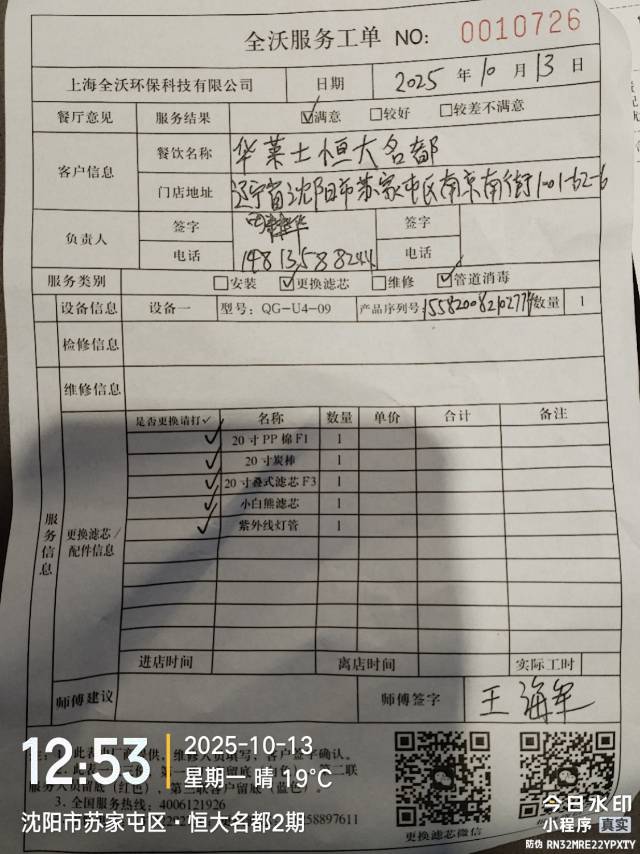 全沃服务工单 NO: 0010726
上海全沃环保科技有限公司 日期 2025 年 10 月 13 日
餐厅意见 服务结果 ☑满意 □较好 □较差不满意
客户信息 餐饮名称 华莱士恒大名都
门店地址 辽宁省沈阳市苏家屯区南京南街1001-62-6
负责人 签字 签字
电话 电话
服务类别 □安装 ☑更换滤芯 □维修 ☑管道消毒
设备信息 设备一 型号: QG-U4-09 产品序列号 数量 1
检修信息
维修信息
服务信息
更换滤芯/配件信息
是否更换请打✓ 名称 数量 单价 合计 备注
✓ 20寸PP棉F1 1
✓ 20寸炭棒 1
✓ 20寸叠式滤芯F3 1
✓ 小白熊滤芯 1
✓ 紫外线灯管 1
进店时间 离店时间 实际工时
师傅建议 师傅签字 王海军
维修人员填写, 客户签字确认。
服务人员留底（红色）, 第三联客户留底（蓝色）。
3. 全国服务热线: 4006121926
58897611
更换滤芯微信
12:53
2025-10-13
星期一 晴 19℃
沈阳市苏家屯区·恒大名都2期
今日水印
小程序 真实
防伪 RN32MRE22YPXTY